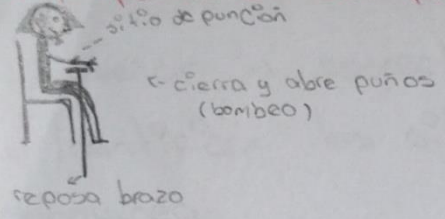 sitio de punción
cierra y abre puños
(bombeo)
reposa brazo